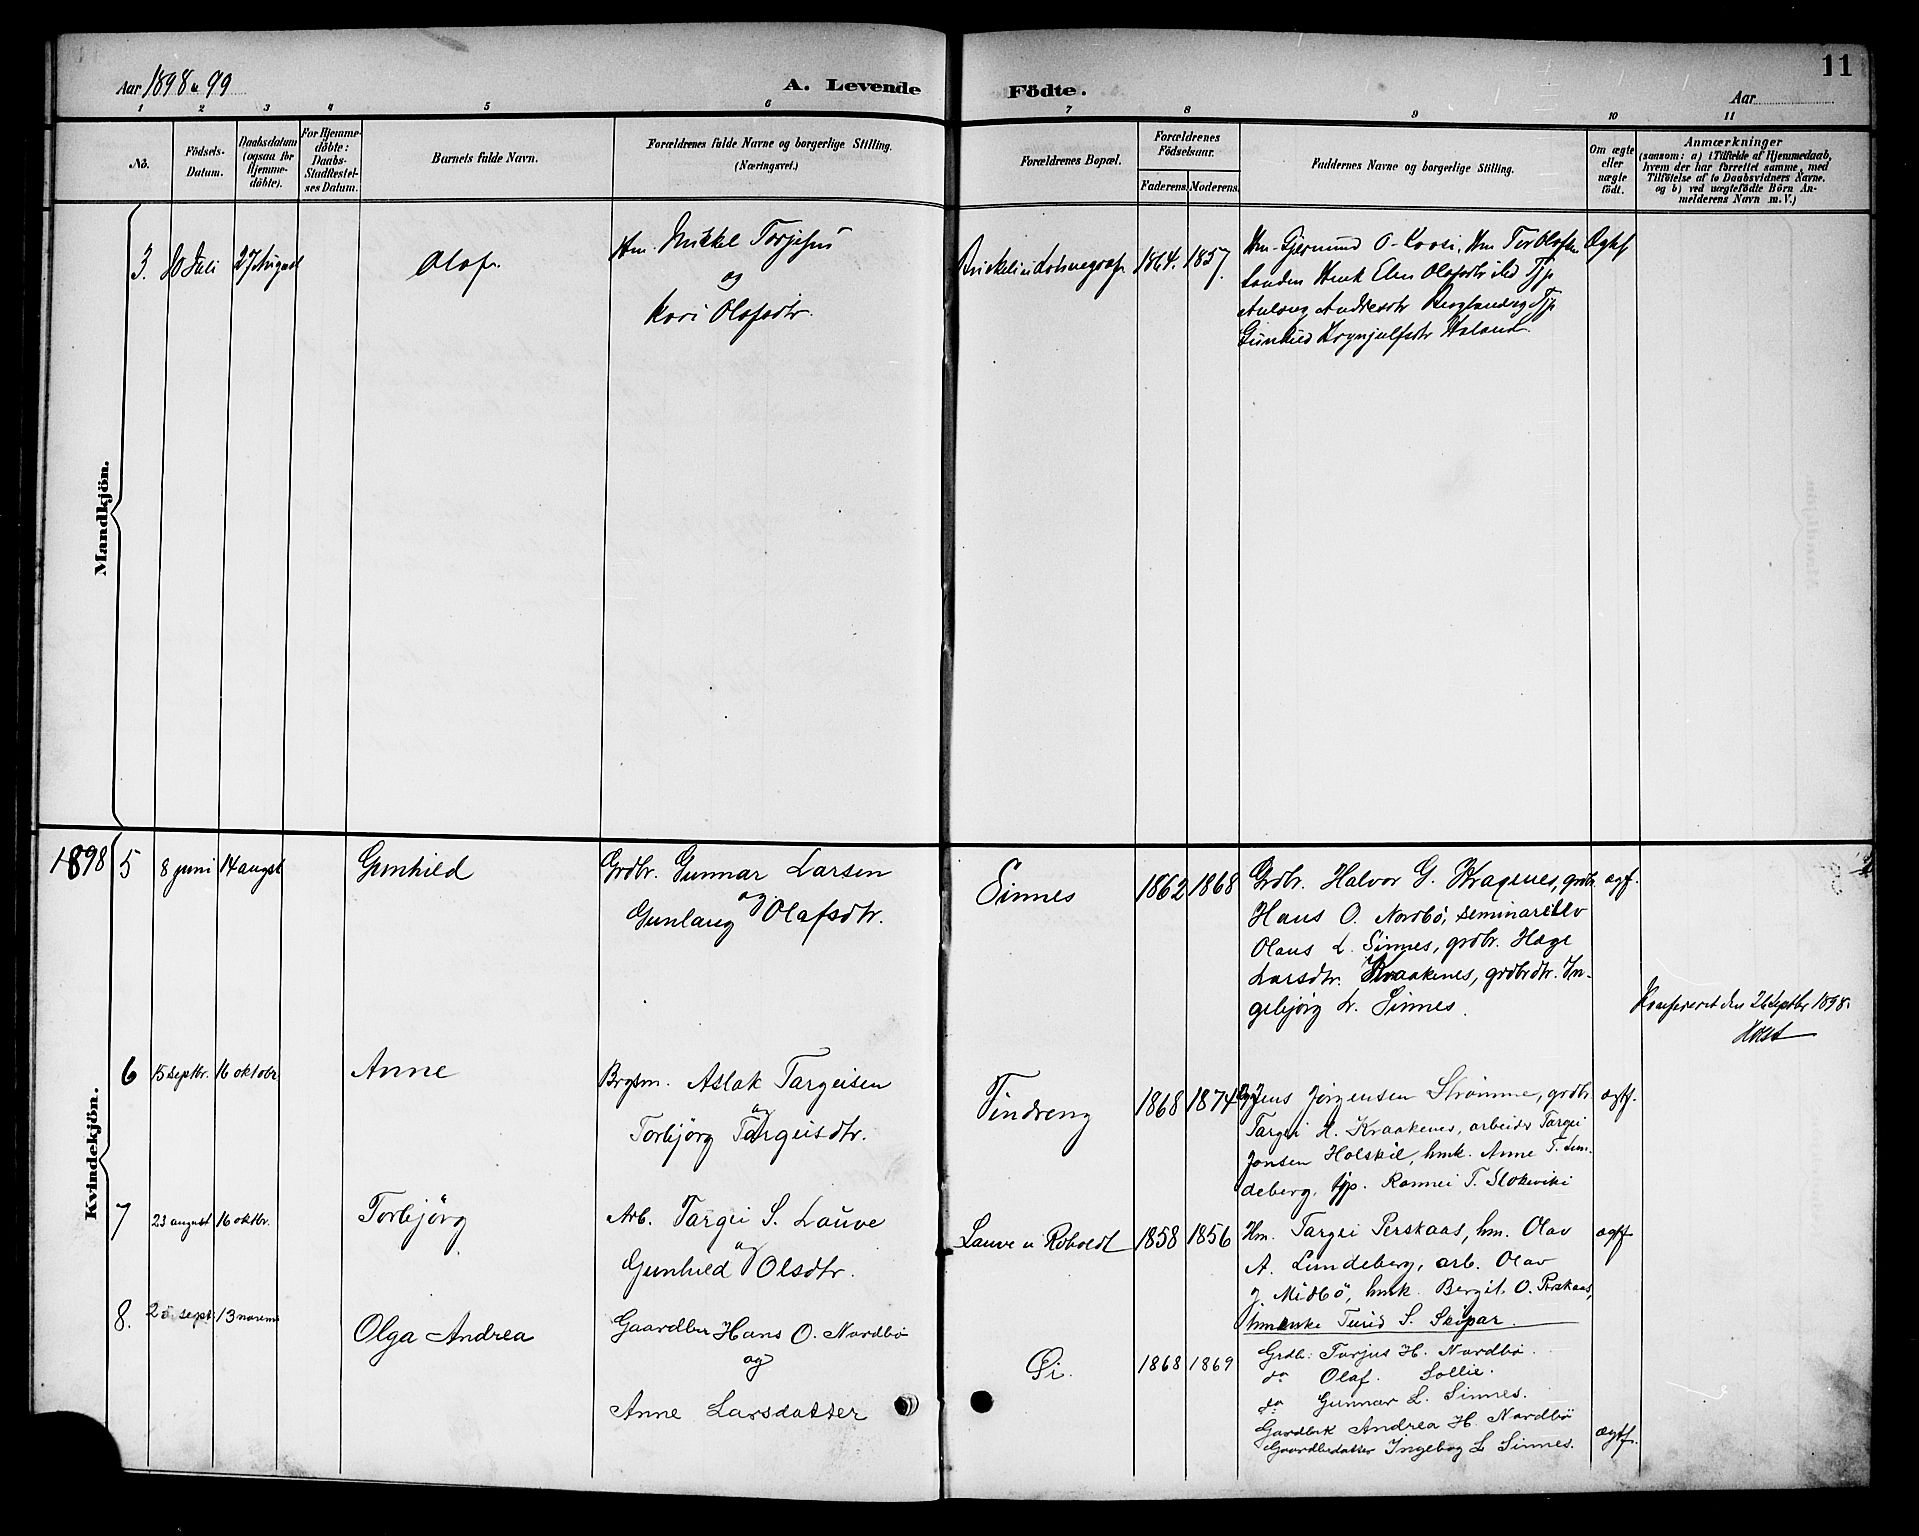 11
Aar 1898 & 99
A. Levende Födte.
Aar
1 2 3 4 5 6 7 8 9 10 11
No.
Födsels-
Datum.
Daabsdatum
(ogsaa for
Hjemme-
döbte).
For Hjemme-
döbte:
Daabs-
Stadfæstel-
ses Datum.
Barnets fulde Navn.
Forældrenes fulde Navne og borgerlige Stilling.
(Næringsvei.)
Forældrenes Bopæl.
Forældrenes
Födselsaar.
Faderens. Moderens.
Faddernes Navne og borgerlige Stilling.
Om ægte
eller
uægte
födt.
Anmærkninger
(saasom: a) i Tilfælde af Hjemmedaab,
hvem der har forrettet samme, med
Tilföielse af to Daabsvidners Navne.
og b) ved uægtefödte Börn An-
melderens Navn m. V.)
Mandkjön.
3. Juli 27 August
Olaf
Hm. Mikkel Torjesen
og
Kari Olafsdtr.
1864. 1857.
Hm. Gjermund O.
Sanden Hmk Elen Olafsdtr
Aslaug Andresdtr
Gunhild Haland
Ægtef
Kvindekjön.
1898
5 8 juni 14 augst
Gunhild
Grdbr. Gunnar Larsen
og
Gunlaug Olafsdtr.
Sinnes
1862 1868
Grdbr. Halvor G. Kragenes, grdbr.
Hans O. Nordbö, seminarelev
Olaus L. Sinnes, grdbr. Hæge
Larsdtr. Kraakenes, grdbrdtr. In-
gebjörg L. Sinnes.
ægtf.
Konfereret den 26 Septbr 1898.
Holst
6 15 septbr. 16 oktobr
Anne
Brgsm. Aslak Targeisen
og
Torbjörg Targeisdtr.
Tindreng
1868 1874
Jens Jörgensen Strömme, grdbr.
Targei H. Kraakenes, arbeider Targei
Jonsen Holskil, hmk. Anne T. Lun-
deberg, tjp. Ronnei T. Slokeviki
ægtf.
7 23 august 16 oktbr.
Torbjörg
Arb. Targei S. Lauve
og
Gunhild Olsdtr.
Lauve u Roholdt
1858 1856
Hm. Targei Perskaas, hm. Olav
A. Lundeberg, arb. Olav
J. Midbö, hmk. Bergit O. Perskaas,
hmenke Turid S. Skipar.
ægtf
8. 25 sept. 13 novem
Olga Andrea
Gaardbr Hans O. Nordbö
og
Anne Larsdatter
Öi.
1868 1869
Grdb: Torjus H. Nordbö.
do Olaf. Sollie.
do Gunnar L. Sinnes.
Gardbk Andrea H. Nordbö
Gaardbrdatter Ingebog L Sinnes.
ægtf.